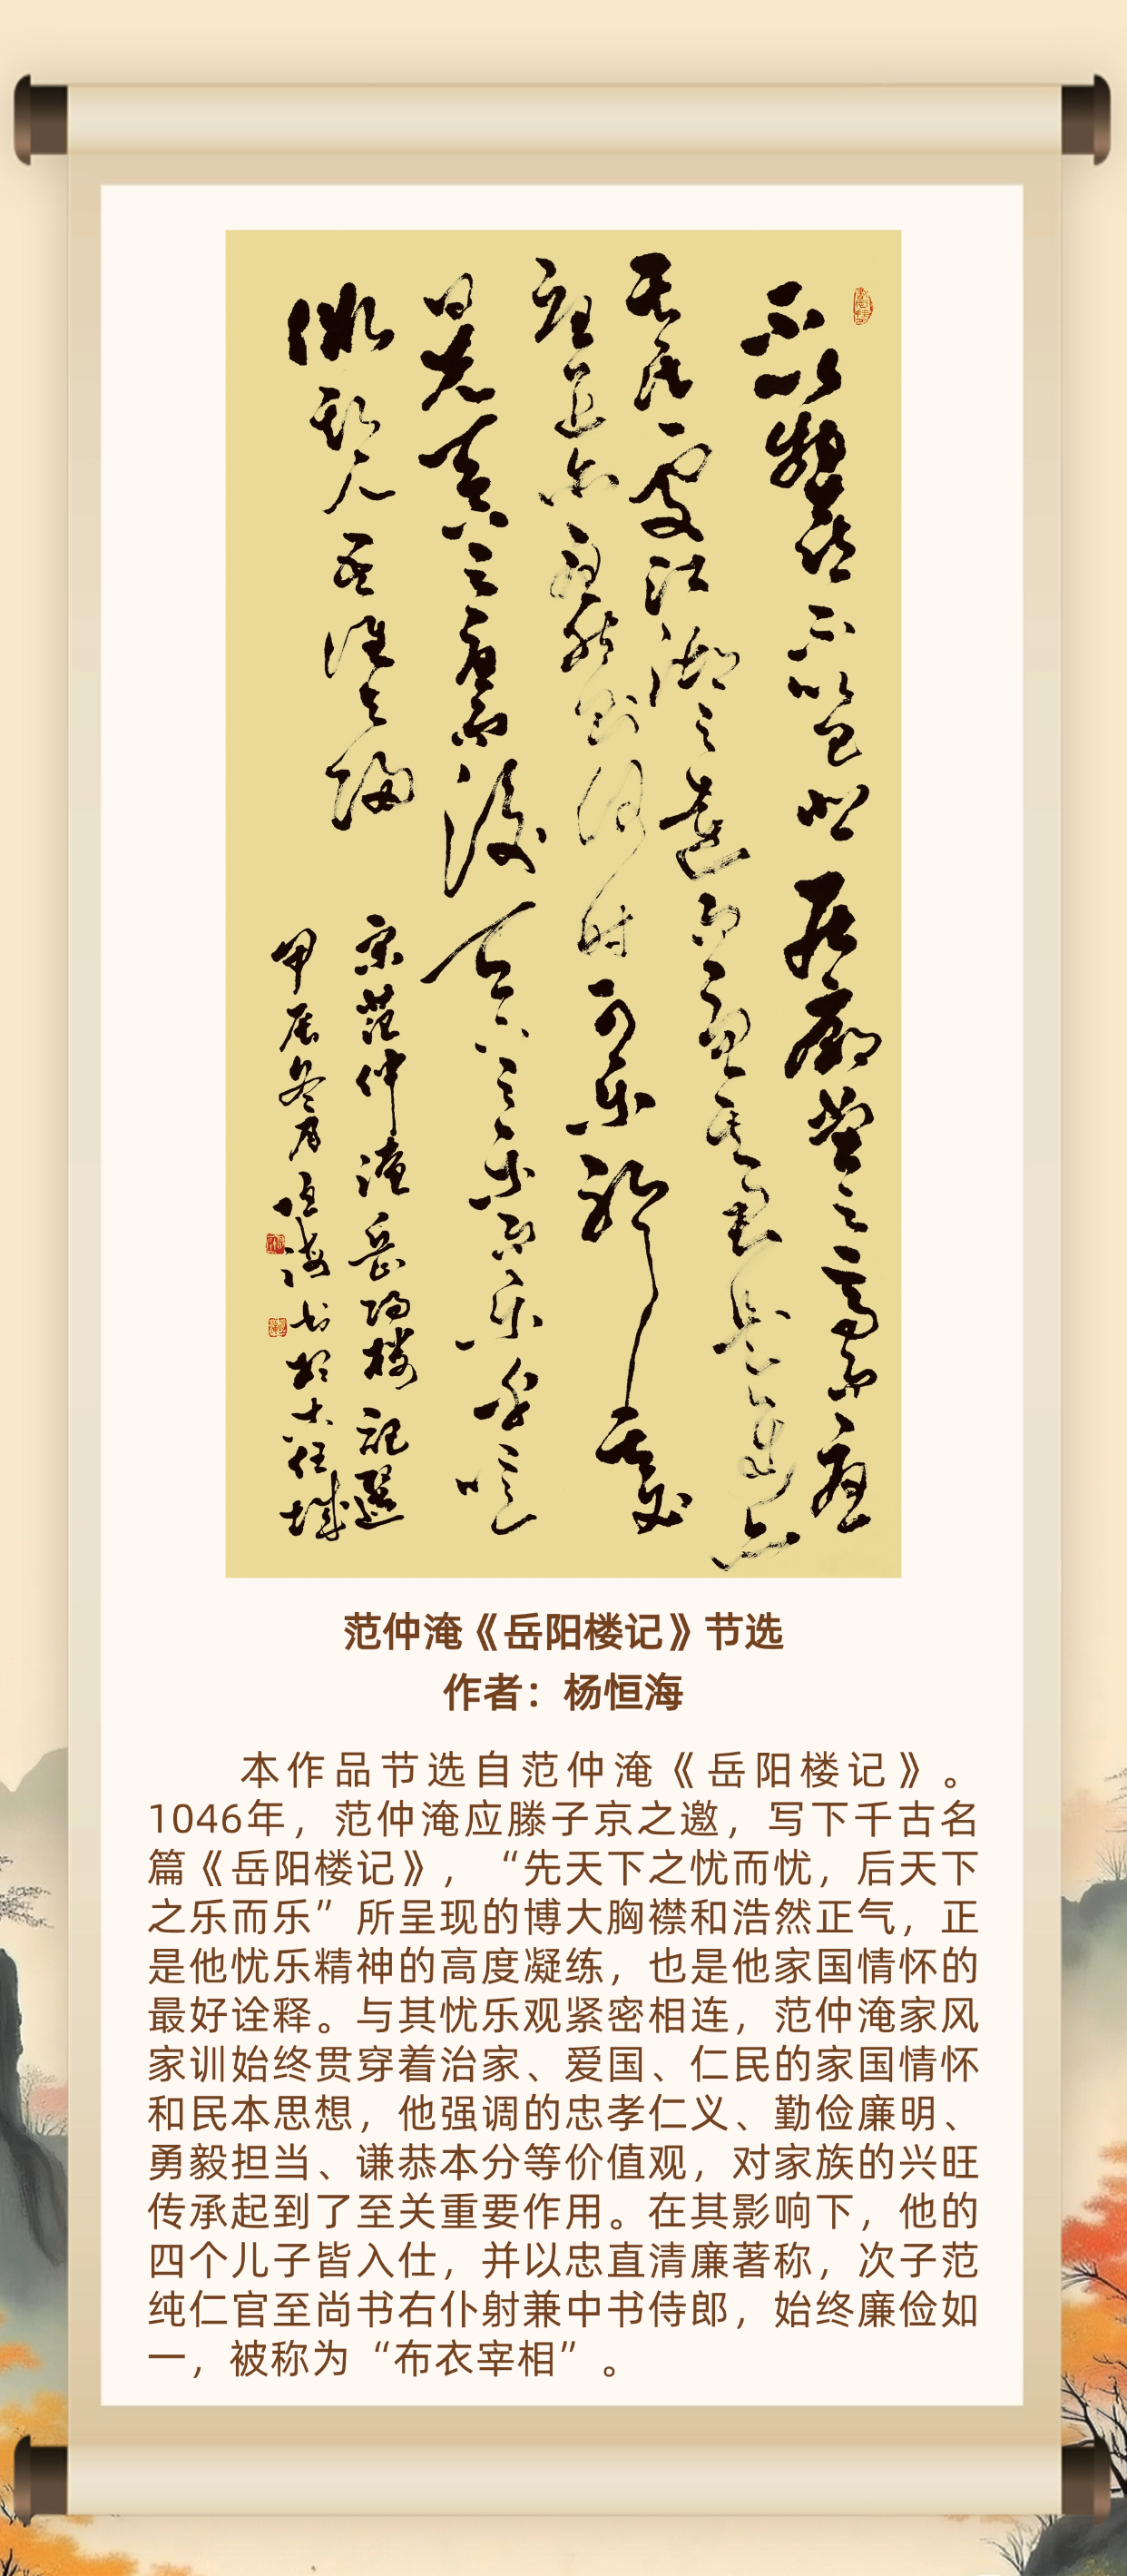 不以物喜不以己悲居廟堂之高則憂
其民處江湖之遠則憂其君是進亦
憂退亦憂然則何時可樂耶其必
曰先天下之憂而憂後天下之樂而樂乎噫
微斯人吾誰與歸
宋范仲淹岳陽樓記選
甲辰冬月恒海书於大任城
范仲淹《岳阳楼记》节选
作者：杨恒海
本作品节选自范仲淹《岳阳楼记》。
1046年，范仲淹应滕子京之邀，写下千古名
篇《岳阳楼记》，“先天下之忧而忧，后天下
之乐而乐”所呈现的博大胸襟和浩然正气，正
是他忧乐精神的高度凝练，也是他家国情怀的
最好诠释。与其忧乐观紧密相连，范仲淹家风
家训始终贯穿着治家、爱国、仁民的家国情怀
和民本思想，他强调的忠孝仁义、勤俭廉明、
勇毅担当、谦恭本分等价值观，对家族的兴旺
传承起到了至关重要作用。在其影响下，他的
四个儿子皆入仕，并以忠直清廉著称，次子范
纯仁官至尚书右仆射兼中书侍郎，始终廉俭如
一，被称为“布衣宰相”。